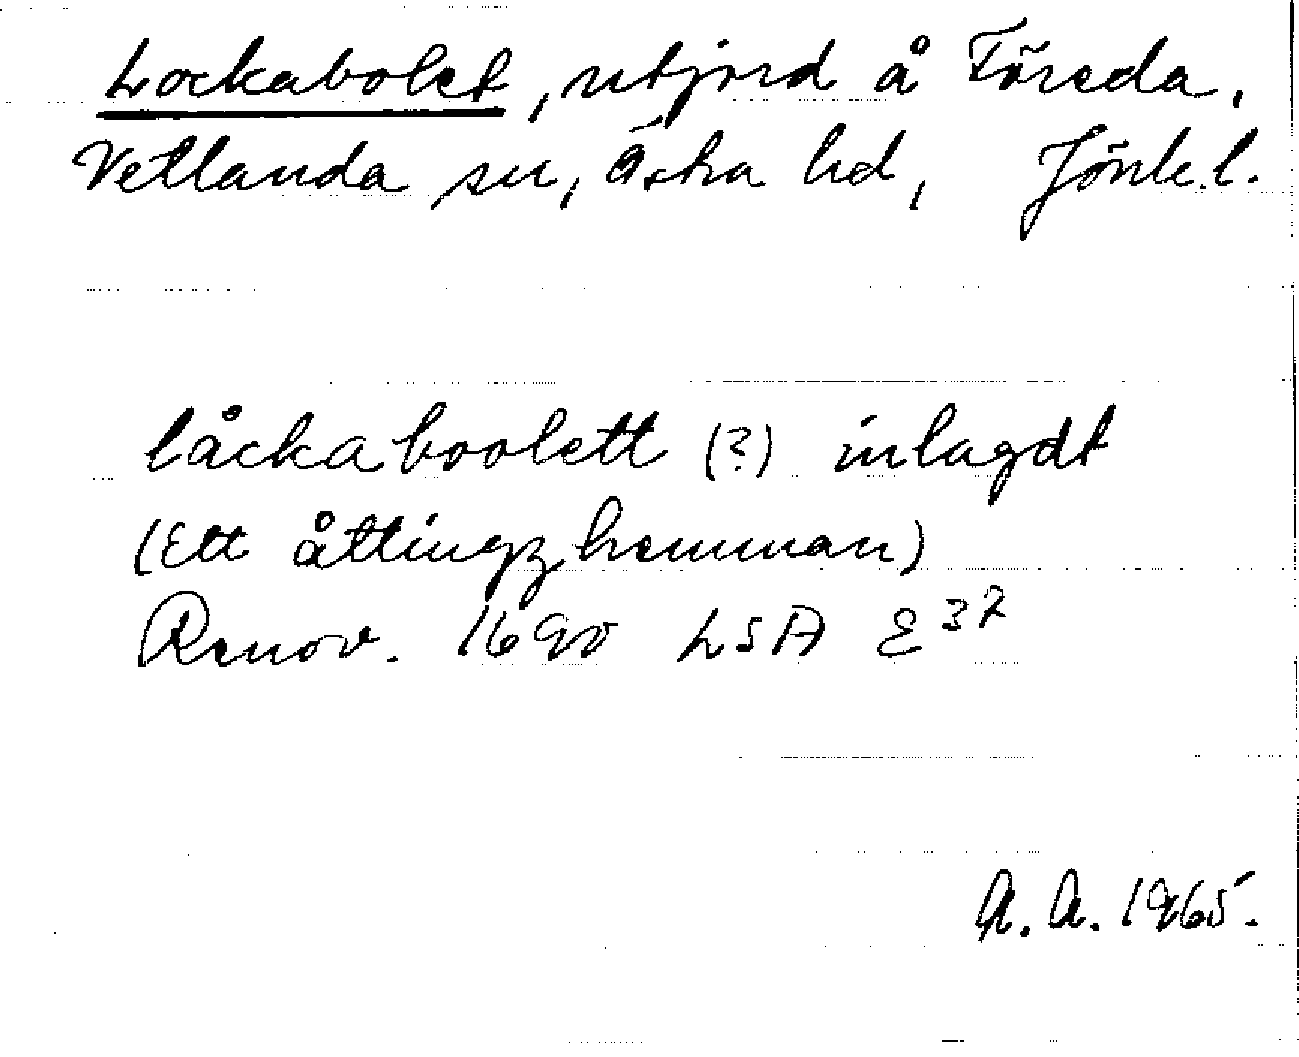 Lockabolet, utjord å Föreda,
Vetlanda sn, Östra hd, Jönk.l.
låckaboolett (?) inlagdt
(Ett åttingz hemman)
Renov. 1690 LSA E 37
A. A. 1965.